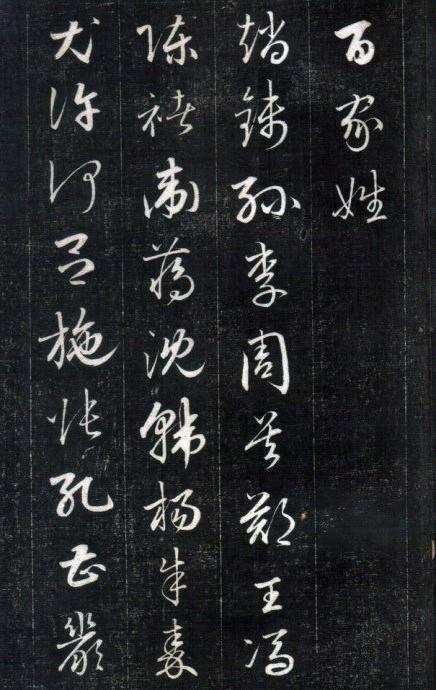 百家姓
趙錢孫李周吳鄭王馮
陳褚衛蔣沈韓楊朱秦
尤許何呂施張孔曹嚴